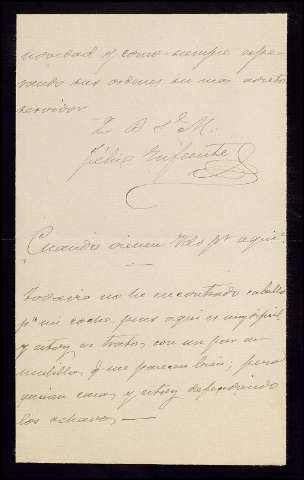 novedad y como siempre espe-
rando sus ordenes su mas adicto
servidor
Q. B. S. M.
Félix Infante
¿Cuando vienen Vds pr aqui?
Todavia no he encontrado caballo
pa mi coche pues aqui es muy dificil
y estoy en tratos con un par de
mulillos q me parecen bien; pero
piden caros y estoy defendiendo
los ochavos